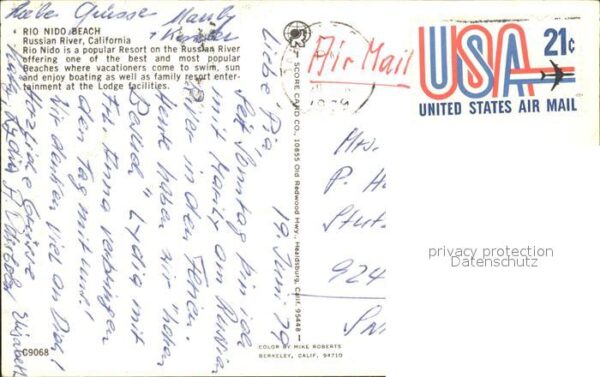 Liebe Grüsse Marily
RIO NIDO BEACH
Russian River, California
Rio Nido is a popular Resort on the Russian River
offering one of the best and most popular
Beaches where vacationers come to swim, sun
and enjoy boating as well as family resort enter-
tainment at the Lodge facilities.
19. Juni 79
Liebe Pia,
Seit Sonntag bin ich
mit Marily am Russian
River in den Ferien.
Heute haben wir "hohen
Besuch" Lydia mit
Frl. Anna verbringen
den Tag mit uns!
Wir denken viel an Dich!
Herzliche Grüsse
Elisabeth
C9068
SCORE CARD CO., 10855 Old Redwood Hwy., Healdsburg, Calif. 95448
COLOR BY MIKE ROBERTS
BERKELEY, CALIF. 94710
Air Mail
1979
USA 21¢
UNITED STATES AIR MAIL
Mrs.
P. H
924
privacy protection
Datenschutz